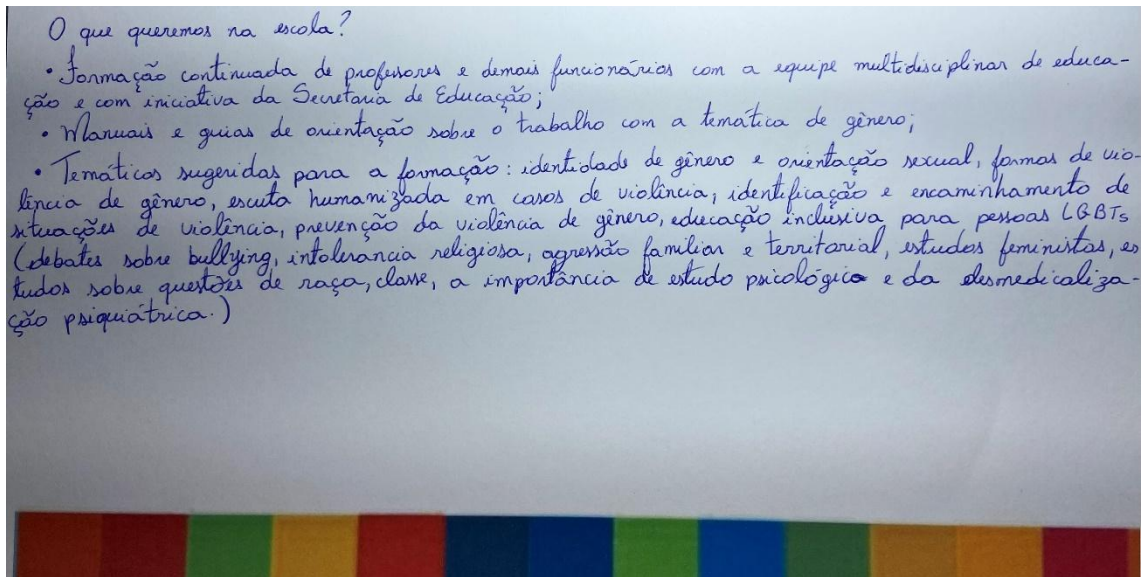 O que queremos na escola?
• Formação continuada de professores e demais funcionários com a equipe multidisciplinar de educa-
ção e com iniciativa da Secretaria de Educação;
• Manuais e guias de orientação sobre o trabalho com a temática de gênero;
• Temáticas sugeridas para a formação: identidade de gênero e orientação sexual, formas de vio-
lência de gênero, escuta humanizada em casos de violência, identificação e encaminhamento de
situações de violência, prevenção da violência de gênero, educação inclusiva para pessoas LGBTs
(debates sobre bullying, intolerancia religiosa, agressão familiar e territorial, estudos feministas, es
tudos sobre questões de raça, classe, a importância de estudo psicológico e da desmedicaliza-
ção psiquiátrica.)